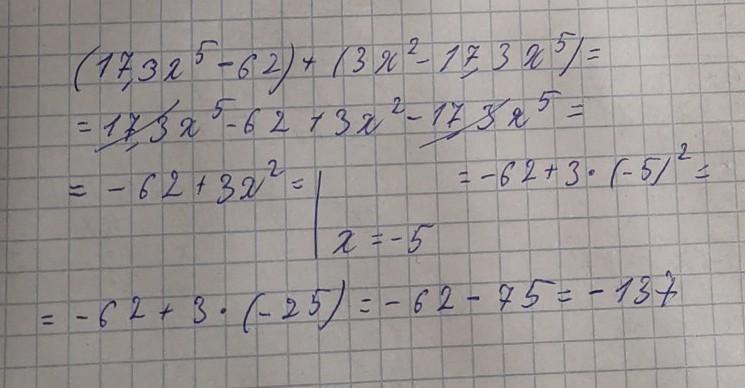 (17,3x⁵-62)+(3x²-17,3x⁵)=
=17,3x⁵-62+3x²-17,3x⁵=
=-62+3x²=| x=-5 =-62+3·(-5)²=
=-62+3·(-25)=-62-75=-137